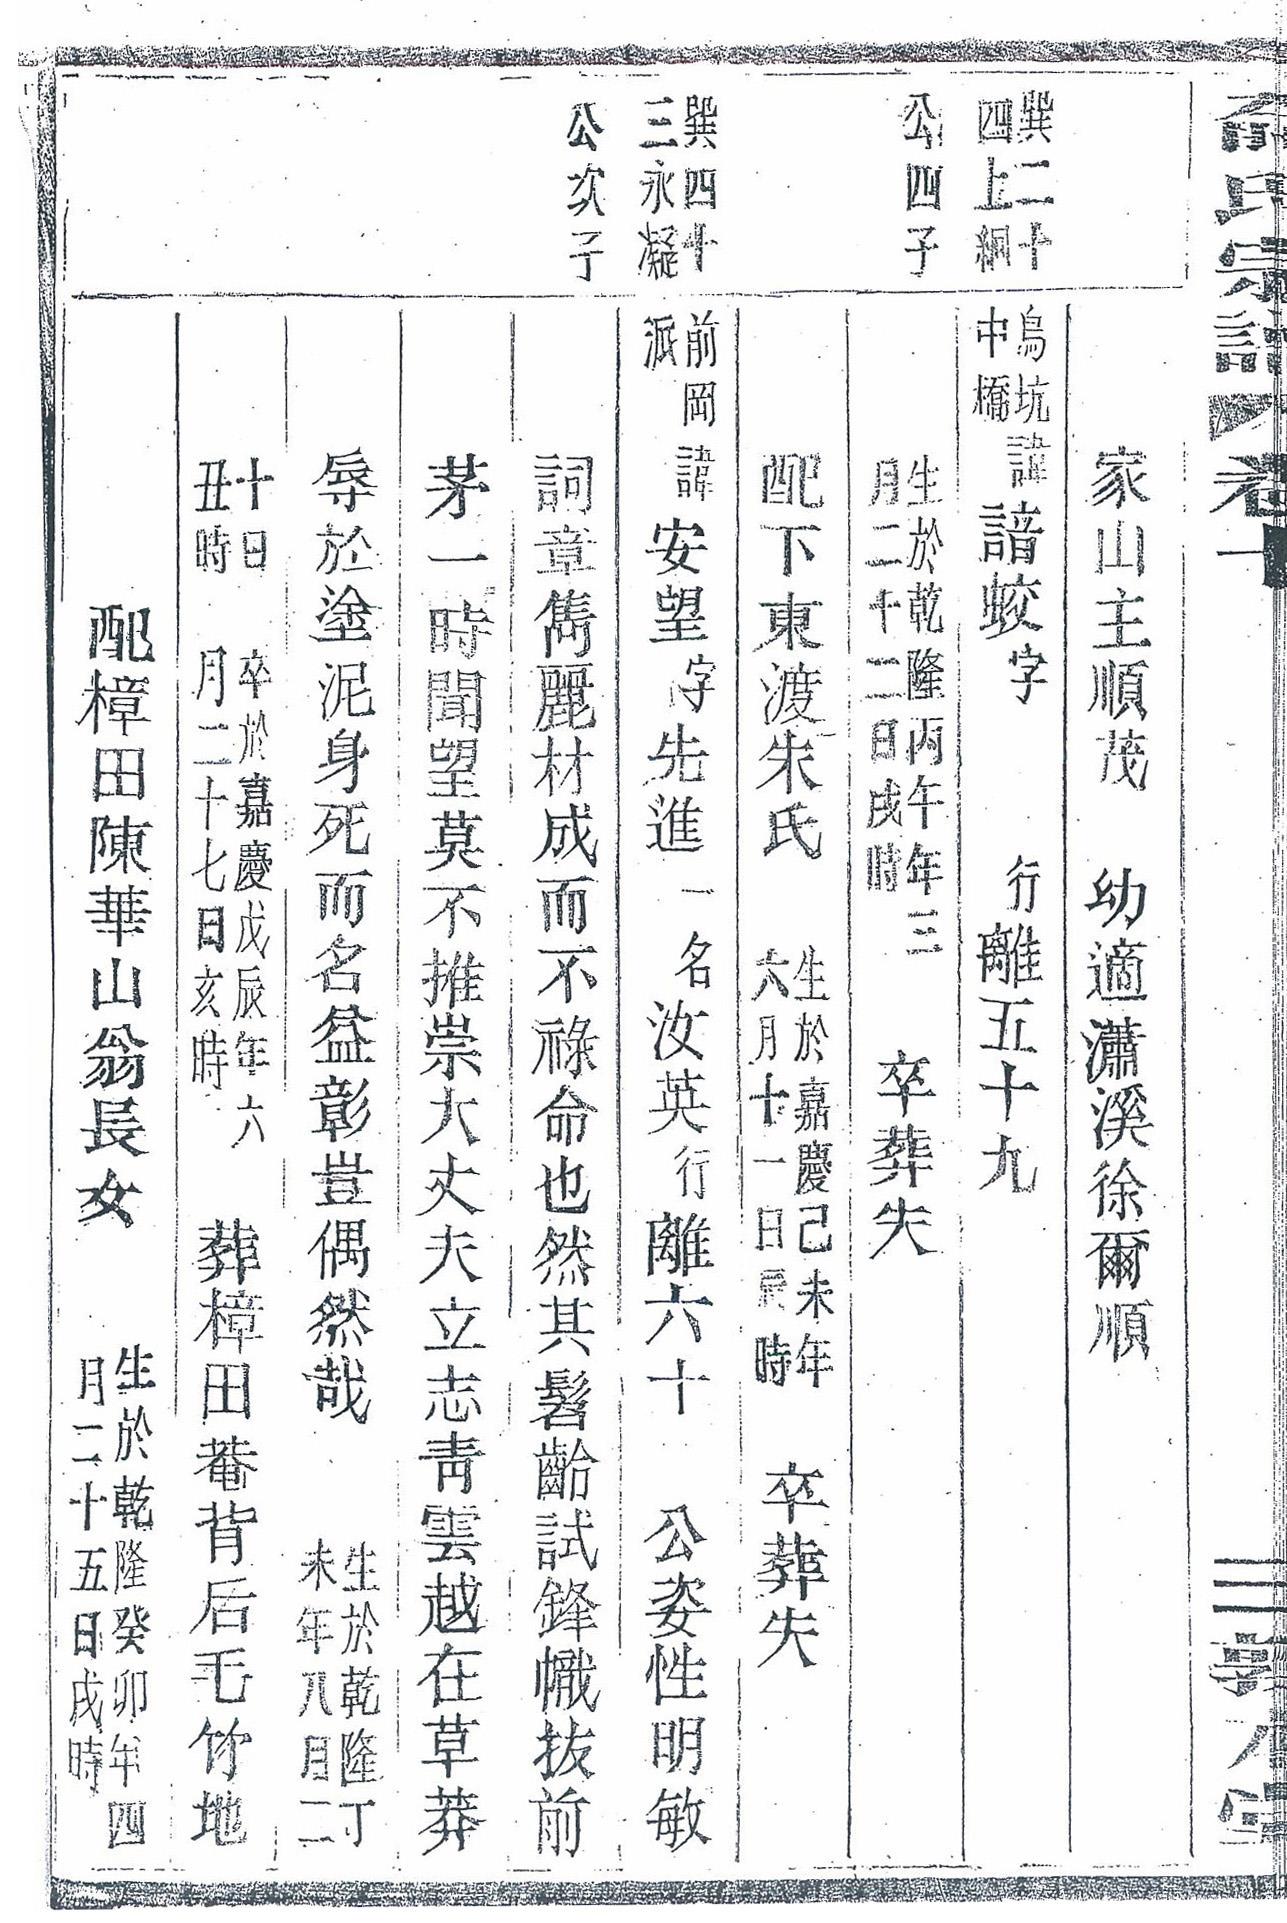 俞氏宗譜 卷十
家山主順茂 幼適瀟溪徐爾順
巽二十四上絅公四子
烏坑中橋 諱諳蛟字 行離五十九
生於乾隆丙午年三月二十二日戌時 卒葬失
配下東渡朱氏 生於嘉慶己未年六月十一日辰時 卒葬失
巽四十三永凝公次子
前岡派 諱安望字先進 一名汝英行離六十 公姿性明敏
詞章雋麗材成而不祿命也然其髫齡試鋒幟拔前
茅一時聞望莫不推崇大丈夫立志青雲越在草莽
辱於塗泥身死而名益彰豈偶然哉 生於乾隆丁未年八月二
十日丑時 卒於嘉慶戊辰年六月二十七日亥時 葬樟田菴背后毛竹地
配樟田陳華山翁長女 生於乾隆癸卯年四月二十五日戌時